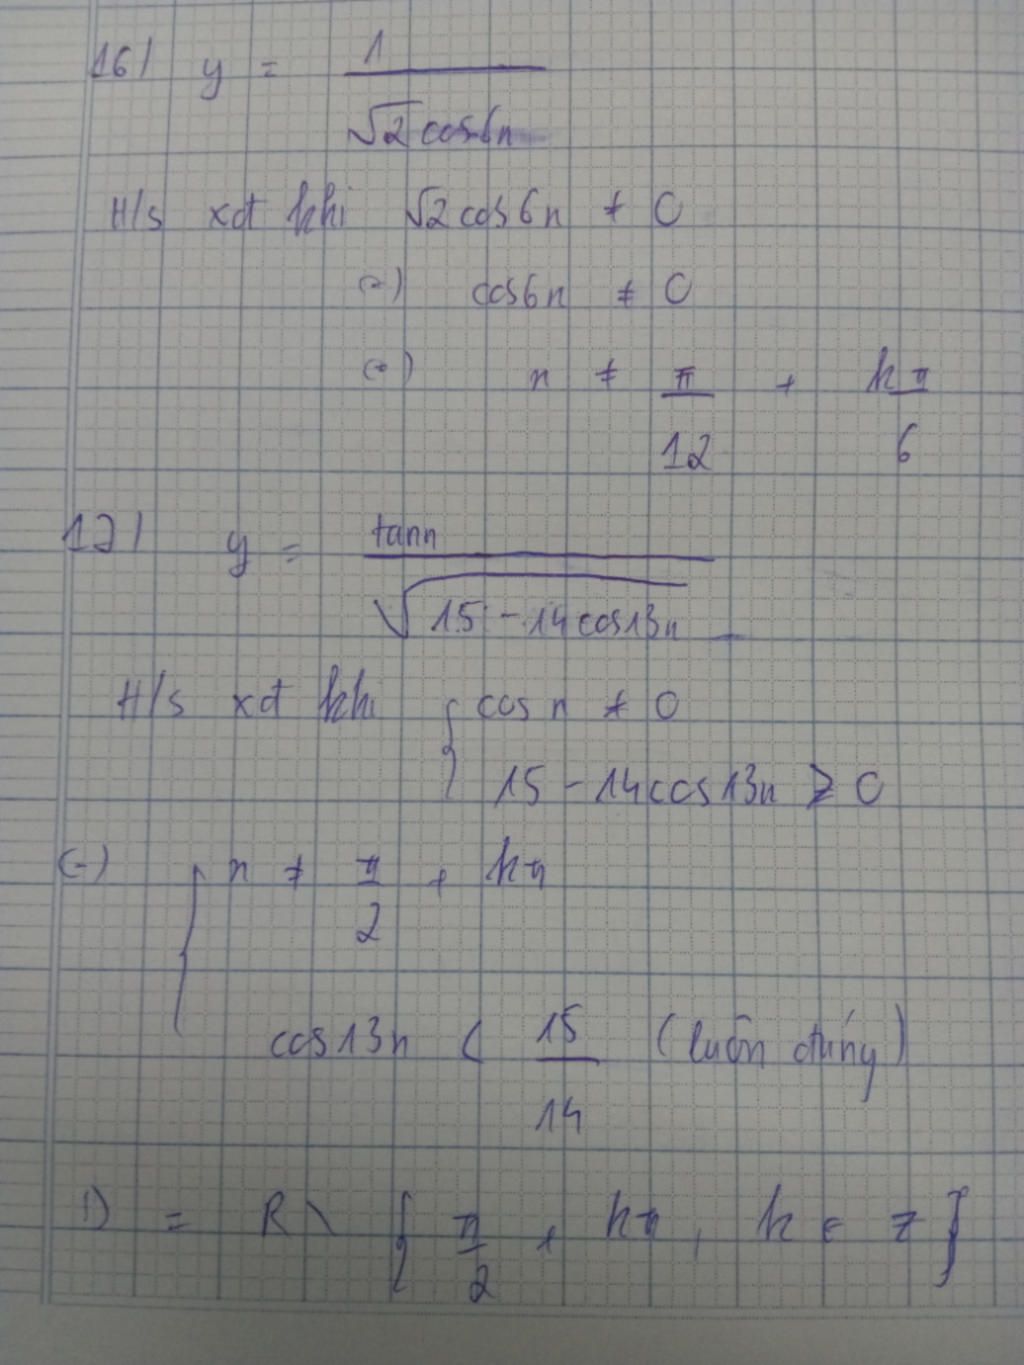 16/ y = 1 / √2 cos6x
H/s xđ khi √2 cos6x ≠ 0
(=) cos6x ≠ 0
(=) x ≠ π/12 + kπ/6
17/ y = tanx / √(15 - 14cos13x)
H/s xđ khi { cosx ≠ 0
15 - 14cos13x > 0
(=) { x ≠ π/2 + kπ
cos13x < 15/14 (luôn đúng)
D = R \ { π/2 + kπ, k ∈ Z }